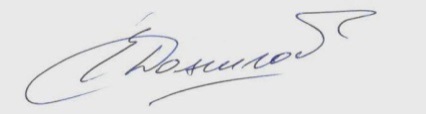 Данилов